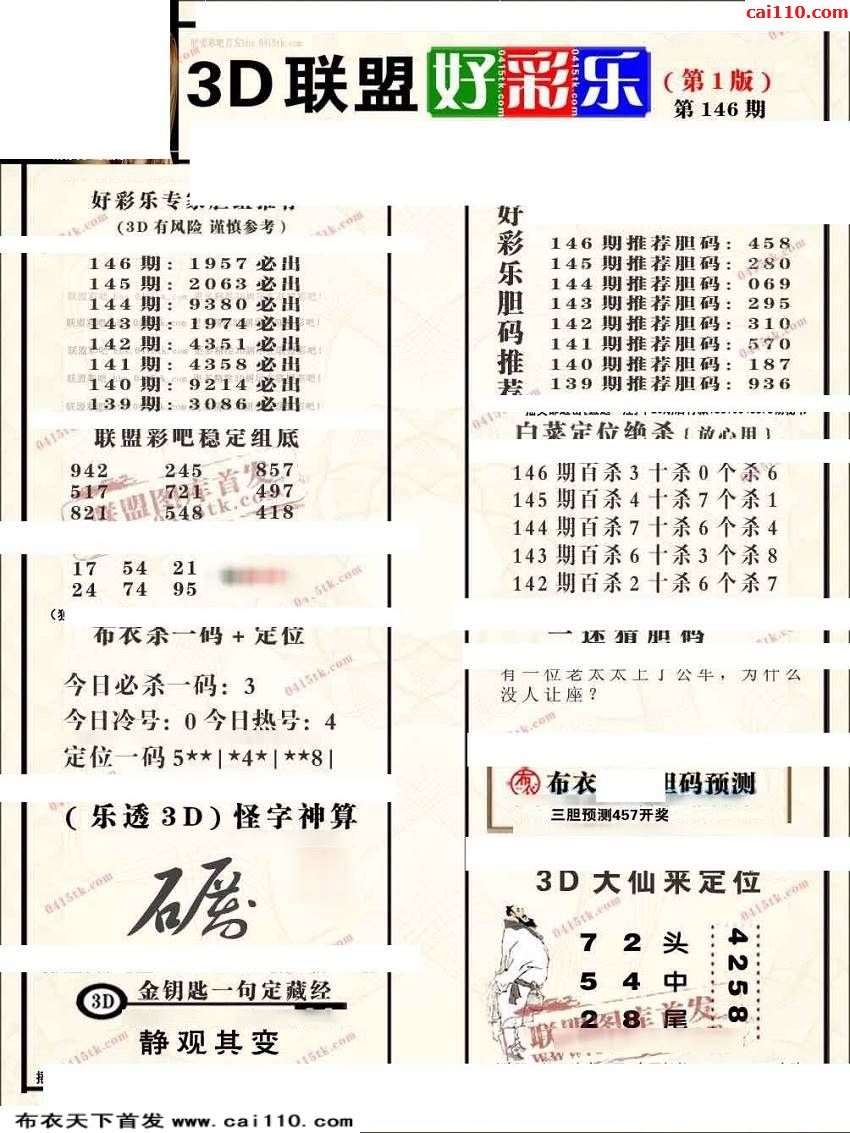 cai110.com
3D联盟好彩乐(第1版)
第146期
好彩乐专家
(3D有风险 谨慎参考)
146期：1957必出
145期：2063必出
144期：9380必出
143期：1974必出
142期：4351必出
141期：4358必出
140期：9214必出
139期：3086必出
联盟彩吧稳定组底
942 245 857
517 721 497
821 548 418
17 54 21
24 74 95
布衣杀一码+定位
今日必杀一码：3
今日冷号：0 今日热号：4
定位一码5**|*4*|**8|
(乐透3D)怪字神算
3D 金钥匙一句定藏经
静观其变
好彩乐胆码推荐
146期推荐胆码：458
145期推荐胆码：280
144期推荐胆码：069
143期推荐胆码：295
142期推荐胆码：310
141期推荐胆码：570
140期推荐胆码：187
139期推荐胆码：936
白菜定位绝杀{放心用}
146期百杀3十杀0个杀6
145期百杀4十杀7个杀1
144期百杀7十杀6个杀4
143期百杀6十杀3个杀8
142期百杀2十杀6个杀7
一迷猜胆码
有一位老太太上了公车，为什么
没人让座？
布衣 胆码预测
三胆预测457开奖
3D大仙来定位
7 2 头
5 4 中
2 8 尾
4258
布衣天下首发 www.cai110.com